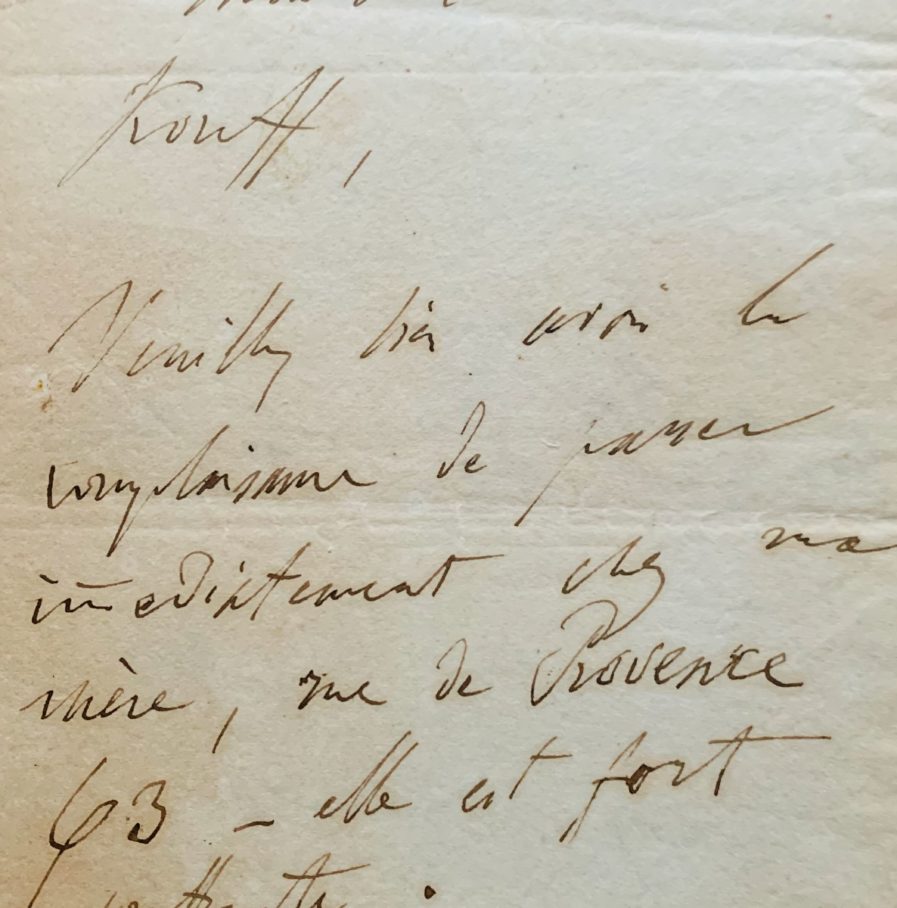 Kouff,
Veuillez bien avoir la
complaisance de passer
imēdiatement chez ma
mère, rue de Provence
63 – elle est fort